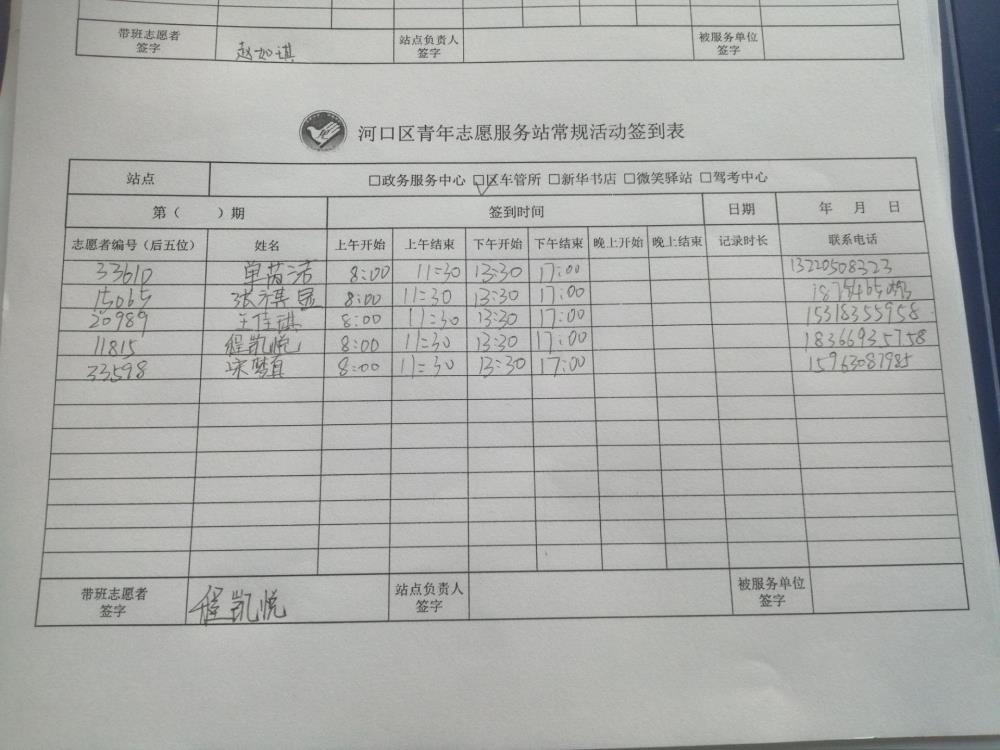 带班志愿者签字 赵如琪 站点负责人签字 被服务单位签字
河口区青年志愿服务站常规活动签到表
站点 □政务服务中心 □区车管所 □新华书店 □微笑驿站 □驾考中心
第（ ）期 签到时间 日期 年 月 日
志愿者编号（后五位） 姓名 上午开始 上午结束 下午开始 下午结束 晚上开始 晚上结束 记录时长 联系电话
33610 单茵洁 8:00 11:30 13:30 17:00 13220508323
15065 8:00 11:30 13:30 17:00
20989 王佳祺 8:00 11:30 13:30 17:00 15318355958
11815 程凯悦 8:00 11:30 13:30 17:00 18366935758
33598 宋梦真 8:00 11:30 13:30 17:00 15963087985
带班志愿者签字 程凯悦 站点负责人签字 被服务单位签字